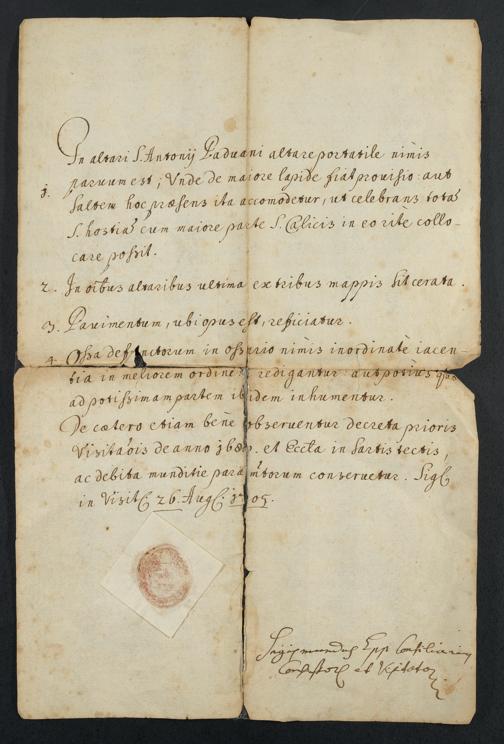 1. In altari S. Antonij Paduani altare portatile nimis
parvum est; Unde de maiore lapide fiat provisio: aut
saltem hoc præsens ita accomodetur, ut celebrans totã
S. hostiã cum maiore parte S. Calicis in eo rite collo-
care possit.
2. In oi͂bus altaribus ultima ex tribus mappis sit cerata.
3. Pavimentum, ubi opus est, reficiatur.
4. Ossa defunctorum in ossario nimis inordinatè iacen-
tia in meliorem ordinem redigantur: aut potius
ad potissimam partem ibidem inhumentur.
De cætero etiam bene observentur decreta prioris
Visita͂ois de anno et Eccl͂a in sartis tectis,
ac debita munditie conservetur. Sigl.
in Visit. 26. Aug.
Sigismundus Epp Consiliarius
et Visitator